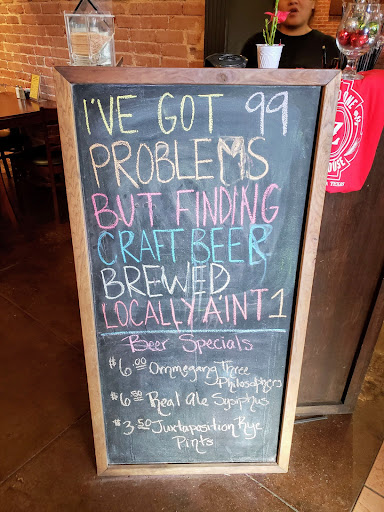 I'VE GOT 99
PROBLEMS
BUT FINDING
CRAFT BEER
BREWED
LOCALLY AIN'T 1
Beer Specials
$6.00 Ommegang Three
Philosophers
$6.50 Real Ale Sysiphus
$3.50 Juxtaposition Rye
Pints